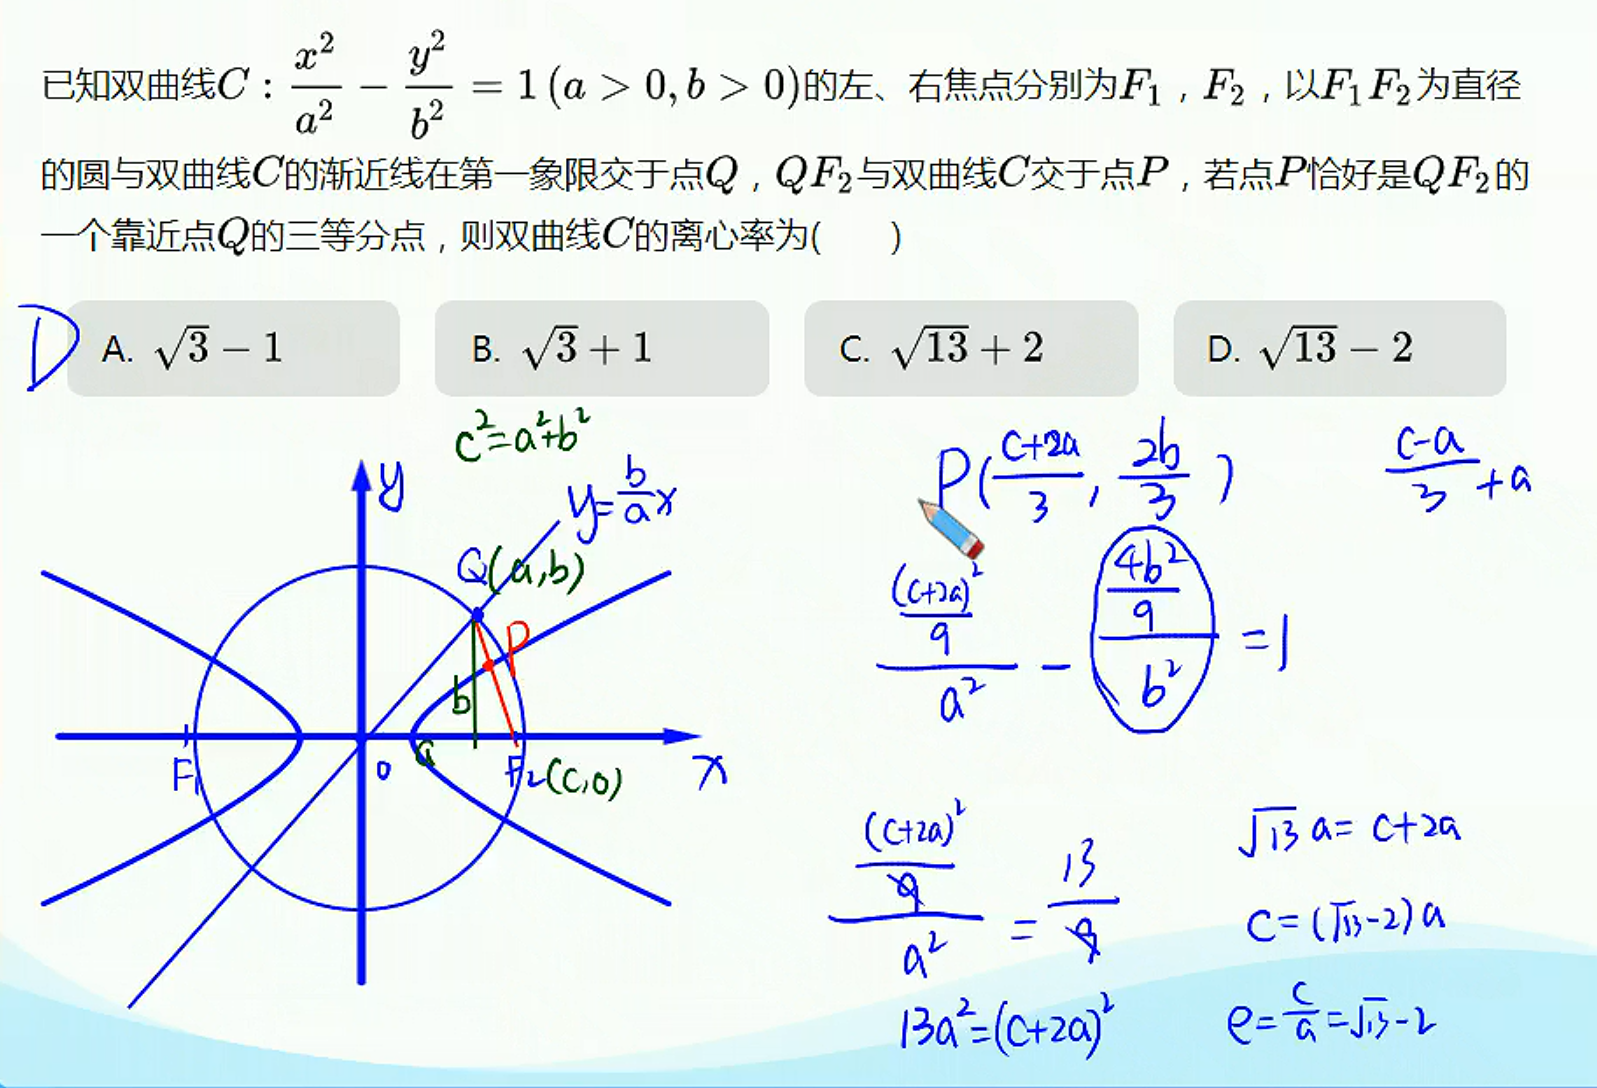 已知双曲线C : x²/a² − y²/b² = 1 (a > 0, b > 0)的左、右焦点分别为F₁，F₂，以F₁F₂为直径
的圆与双曲线C的渐近线在第一象限交于点Q，QF₂与双曲线C交于点P，若点P恰好是QF₂的
一个靠近点Q的三等分点，则双曲线C的离心率为(　　)
D
A. √3 − 1
B. √3 + 1
C. √13 + 2
D. √13 − 2
c²=a²+b²
y
y=b/a x
Q(a,b)
P
b
a
F₁
0
F₂(c,0)
x
P((c+2a)/3, 2b/3)
(c-a)/3 +a
((c+2a)²/9)/a² − (4b²/9)/b² =1
((c+2a)²/9)/a² = 13/9
13a²=(c+2a)²
√13 a= c+2a
c=(√13-2)a
e=c/a=√13-2